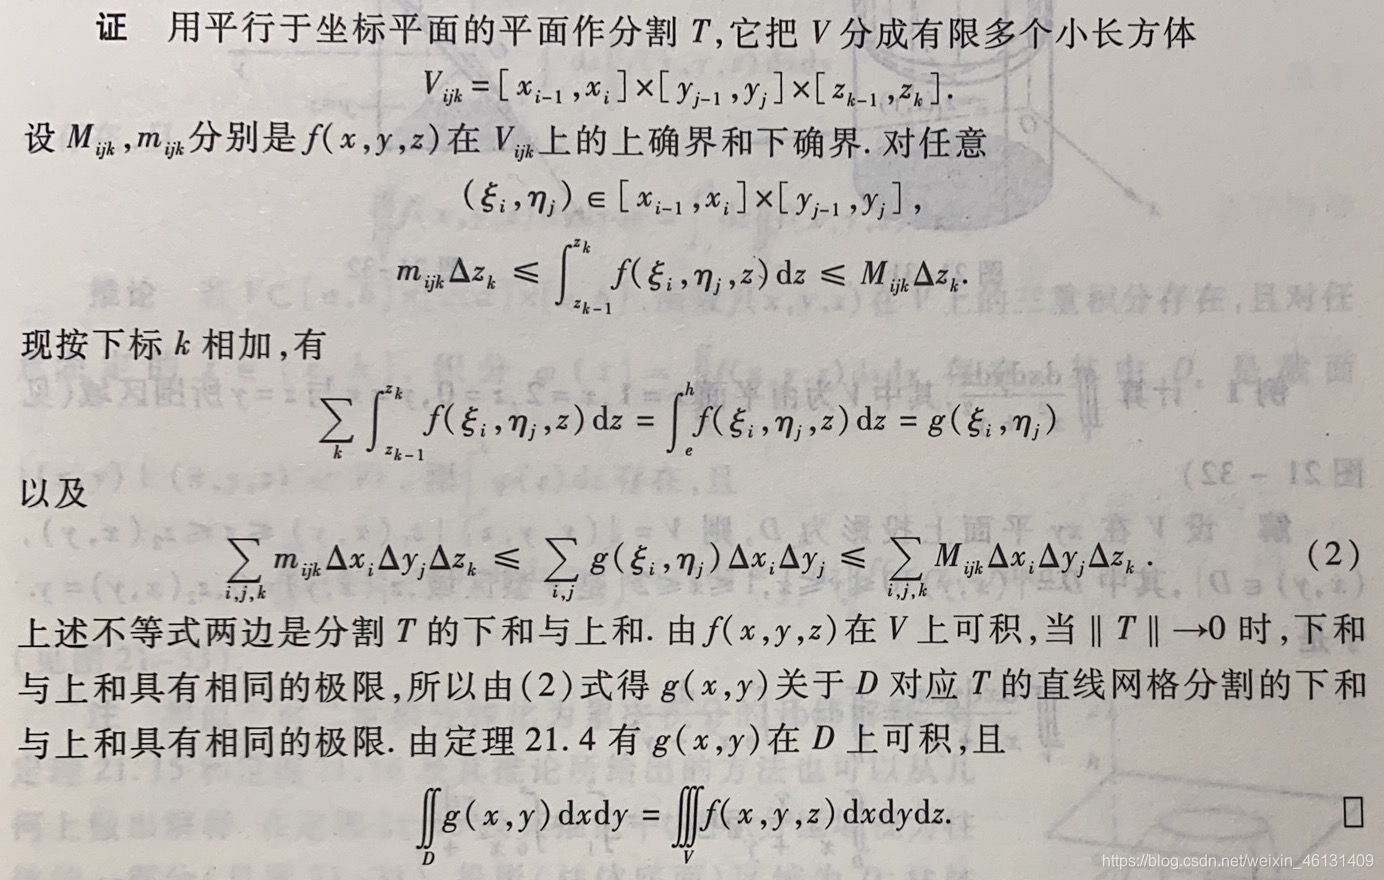 证 用平行于坐标平面的平面作分割 T,它把 V 分成有限多个小长方体
V_{ijk}=[x_{i-1},x_i]×[y_{j-1},y_j]×[z_{k-1},z_k].
设 M_{ijk},m_{ijk}分别是 f(x,y,z)在 V_{ijk}上的上确界和下确界. 对任意
(ξ_i,η_j)∈[x_{i-1},x_i]×[y_{j-1},y_j],
m_{ijk}Δz_k ≤ ∫_{z_{k-1}}^{z_k} f(ξ_i,η_j,z)dz ≤ M_{ijk}Δz_k.
现按下标 k 相加,有
∑_k ∫_{z_{k-1}}^{z_k} f(ξ_i,η_j,z)dz = ∫_e^h f(ξ_i,η_j,z)dz = g(ξ_i,η_j)
以及
∑_{i,j,k} m_{ijk}Δx_iΔy_jΔz_k ≤ ∑_{i,j} g(ξ_i,η_j)Δx_iΔy_j ≤ ∑_{i,j,k} M_{ijk}Δx_iΔy_jΔz_k. (2)
上述不等式两边是分割 T 的下和与上和. 由 f(x,y,z)在 V 上可积,当 ‖T‖→0 时,下和
与上和具有相同的极限,所以由(2)式得 g(x,y)关于 D 对应 T 的直线网格分割的下和
与上和具有相同的极限. 由定理 21.4 有 g(x,y)在 D 上可积,且
∬_D g(x,y)dxdy = ∭_V f(x,y,z)dxdydz. □
https://blog.csdn.net/weixin_46131409